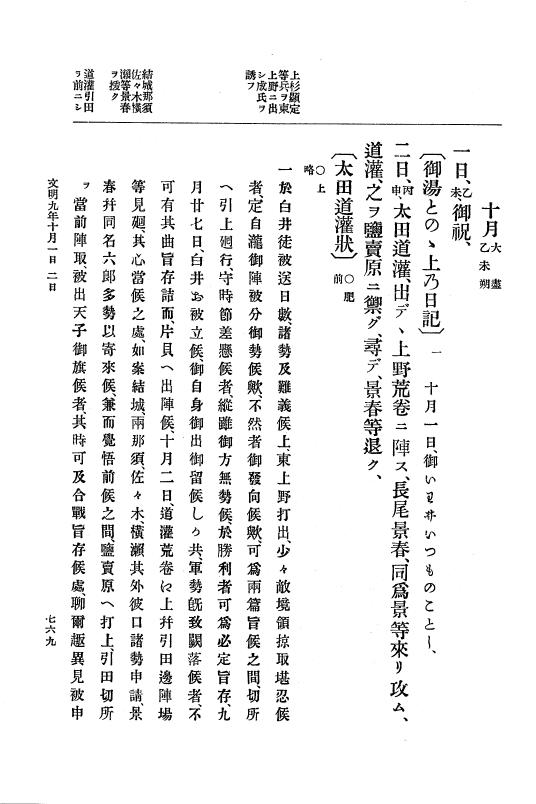 十月大盡
乙未朔
一日、乙未、御祝、
〔御湯とのゝ上乃日記〕一 十月一日、御いわ井いつものことし、
二日、丙申、太田道灌、出デヽ上野荒卷ニ陣ス、長尾景春、同爲景等來リ攻ム、
道灌、之ヲ鹽賣原ニ禦グ、尋デ、景春等退ク、
〔太田道灌狀〕○肥前
○上略
一於白井徒被送日數、諸勢及難義候上、東上野打出、少々敵境領掠取堪忍候
者、定自瀧御陣被分御勢候歟、不然者御發向候歟、可爲兩篇旨候之間、切所
へ引上廻行、守時節差懸候者、縱雖御方無勢候、於勝利者可爲必定旨存、九
月廿七日、白井お被立候、御自身御出御留候しう共、軍勢旣致闕落候者、不
可有其曲旨存詰而、片貝へ出陣候、十月二日、道灌荒卷に上幷引田邊陣場
等見廻、其心當候之處、如案結城、兩那須、佐々木横瀨其外彼口諸勢申請、景
春幷同名六郞多勢以寄來候、兼而覺悟前候之間、鹽賣原へ打上、引田切所
ヲ當前陣取被出天子御旗候者、其時可及合戰旨存候處、聊爾趣異見被申
上杉顯定
等兵ヲ東
上野ニ出
シ成氏ヲ
誘フ
結城那須
佐々木横
瀨等景春
ヲ援ク
道灌引田
ヲ前ニシ
文明九年十月一日 二日
七六九